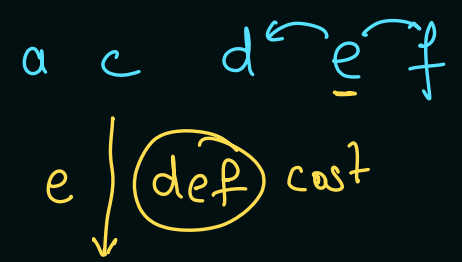 a c d e f
e def cost